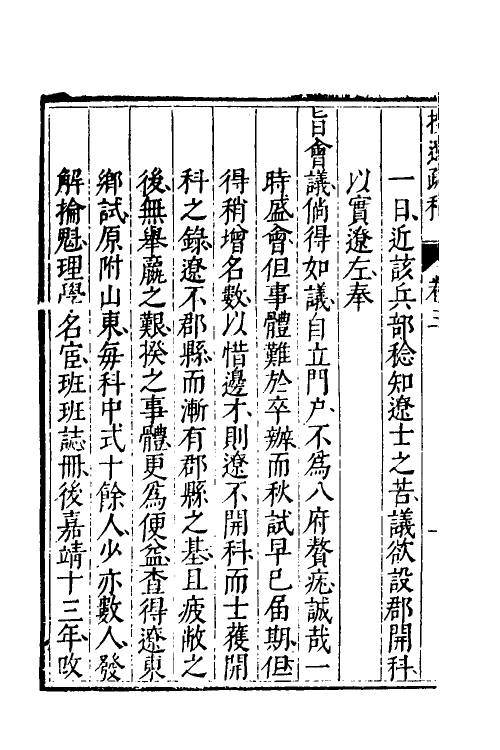 按遼疏稿 卷三
一日近該兵部稔知遼士之苦議欲設郡開科
以實遼左奉
旨會議倘得如議自立門戶不爲八府贅疣誠哉一
時盛會但事體難於卒辦而秋試早已届期但
得稍增名數以惜邊才則遼不開科而士獲開
科之錄遼不郡縣而漸有郡縣之基且疲敝之
後無舉羸之艱揆之事體更爲便益查得遼東
鄉試原附山東每科中式十餘人少亦數人發
解掄魁理學名宦班班誌冊後嘉靖十三年改